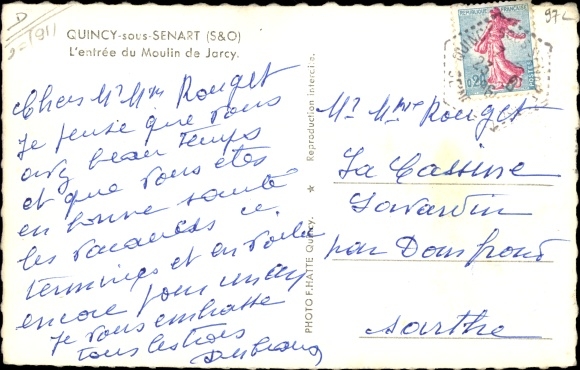 QUINCY-sous-SENART (S&O)
L'entrée du Moulin de Jarcy.
(91)
97L
Chers Mr Mme Rouget
Je pense que vous
avez beau temps
et que vous êtes
en bonne santé
les vacances ce
termines et en voila
encore pour un an
Je vous embrasse
tous les trois
Reproduction interdite.
PHOTO F. HATTE Quincy.
REPUBLIQUE FRANÇAISE
0,20
POSTES
Mr Mme Rouget
La Cassine
Lavardin
par Domfront
Sarthe